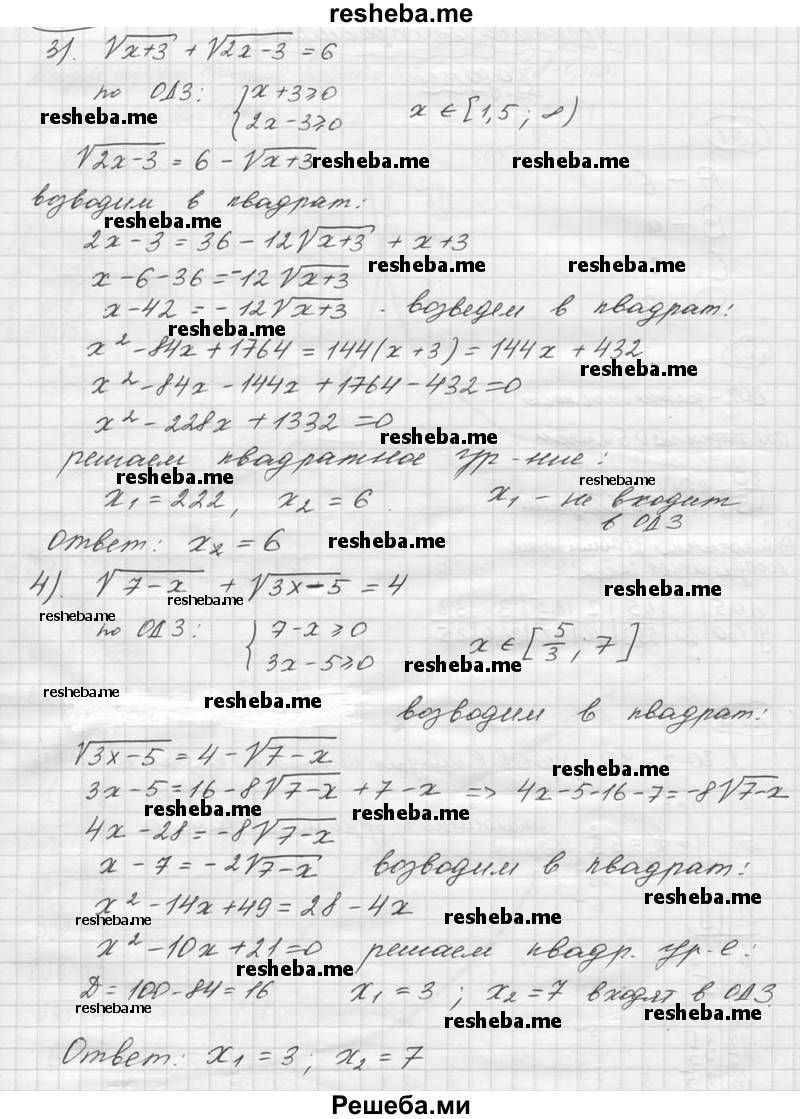 resheba.me
3). √(x+3) + √(2x-3) = 6
по ОДЗ: { x+3≥0 x ∈ [1,5; ∞)
resheba.me { 2x-3≥0
√(2x-3) = 6 - √(x+3) resheba.me resheba.me
возводим в квадрат:
resheba.me
2x-3 = 36 - 12√(x+3) + x+3
resheba.me resheba.me
x-6-36 = -12√(x+3)
x-42 = -12√(x+3) - возведем в квадрат:
resheba.me
x² -84x+1764 = 144(x+3) = 144x+432
resheba.me
x² -84x-144x+1764-432=0
x² - 228x + 1332 =0
resheba.me
решаем квадратное ур-ние:
resheba.me resheba.me
x₁ = 222, x₂ = 6. x₁ - не входит
в ОДЗ
Ответ: x₂ = 6 resheba.me
4). √(7-x) + √(3x-5) = 4
resheba.me resheba.me
resheba.me
по ОДЗ: { 7-x≥0 x ∈ [5/3; 7]
{ 3x-5≥0 resheba.me
resheba.me resheba.me
возводим в квадрат:
√(3x-5) = 4 - √(7-x)
resheba.me
3x-5=16-8√(7-x) +7-x => 4x-5-16-7=-8√(7-x)
resheba.me resheba.me
4x-28=-8√(7-x)
x-7 = -2√(7-x) возводим в квадрат:
resheba.me
x² -14x+49=28-4x
resheba.me resheba.me
x²-10x+21=0 решаем квадр. ур-е:
resheba.me
D=100-84=16 x₁ = 3; x₂=7 входят в ОДЗ
resheba.me resheba.me resheba.me
Ответ: x₁ = 3; x₂ = 7
Решеба.ми